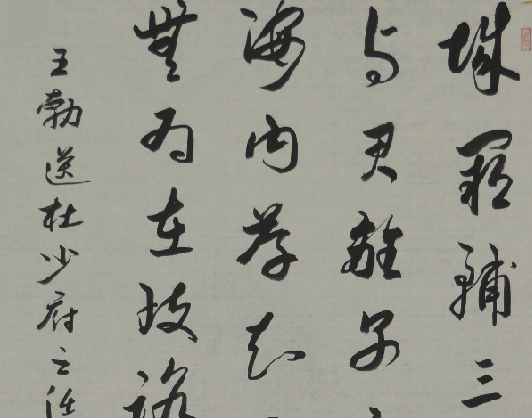 城闕輔三
与君離別
海内存知
無為在歧路
王勃送杜少府之任